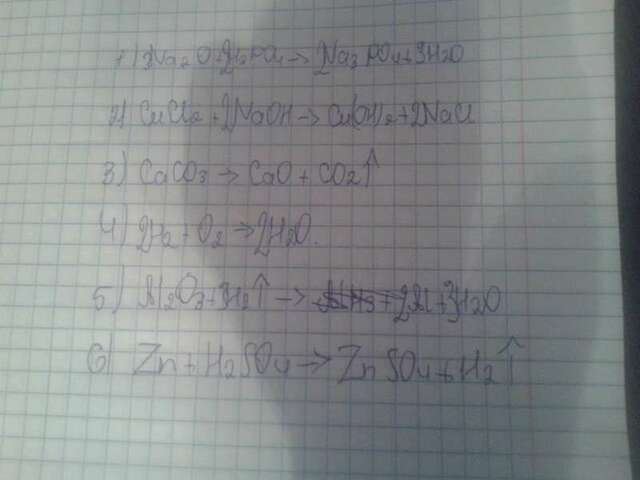 1) 3Na2O+2H3PO4→2Na3PO4+3H2O
2) CuCl2+2NaOH→Cu(OH)2+2NaCl
3) CaCO3→CaO+CO2↑
4) 2H2+O2→2H2O.
5) Al2O3+3H2↑→ 2Al+3H2O
6) Zn+H2SO4→ZnSO4+H2↑